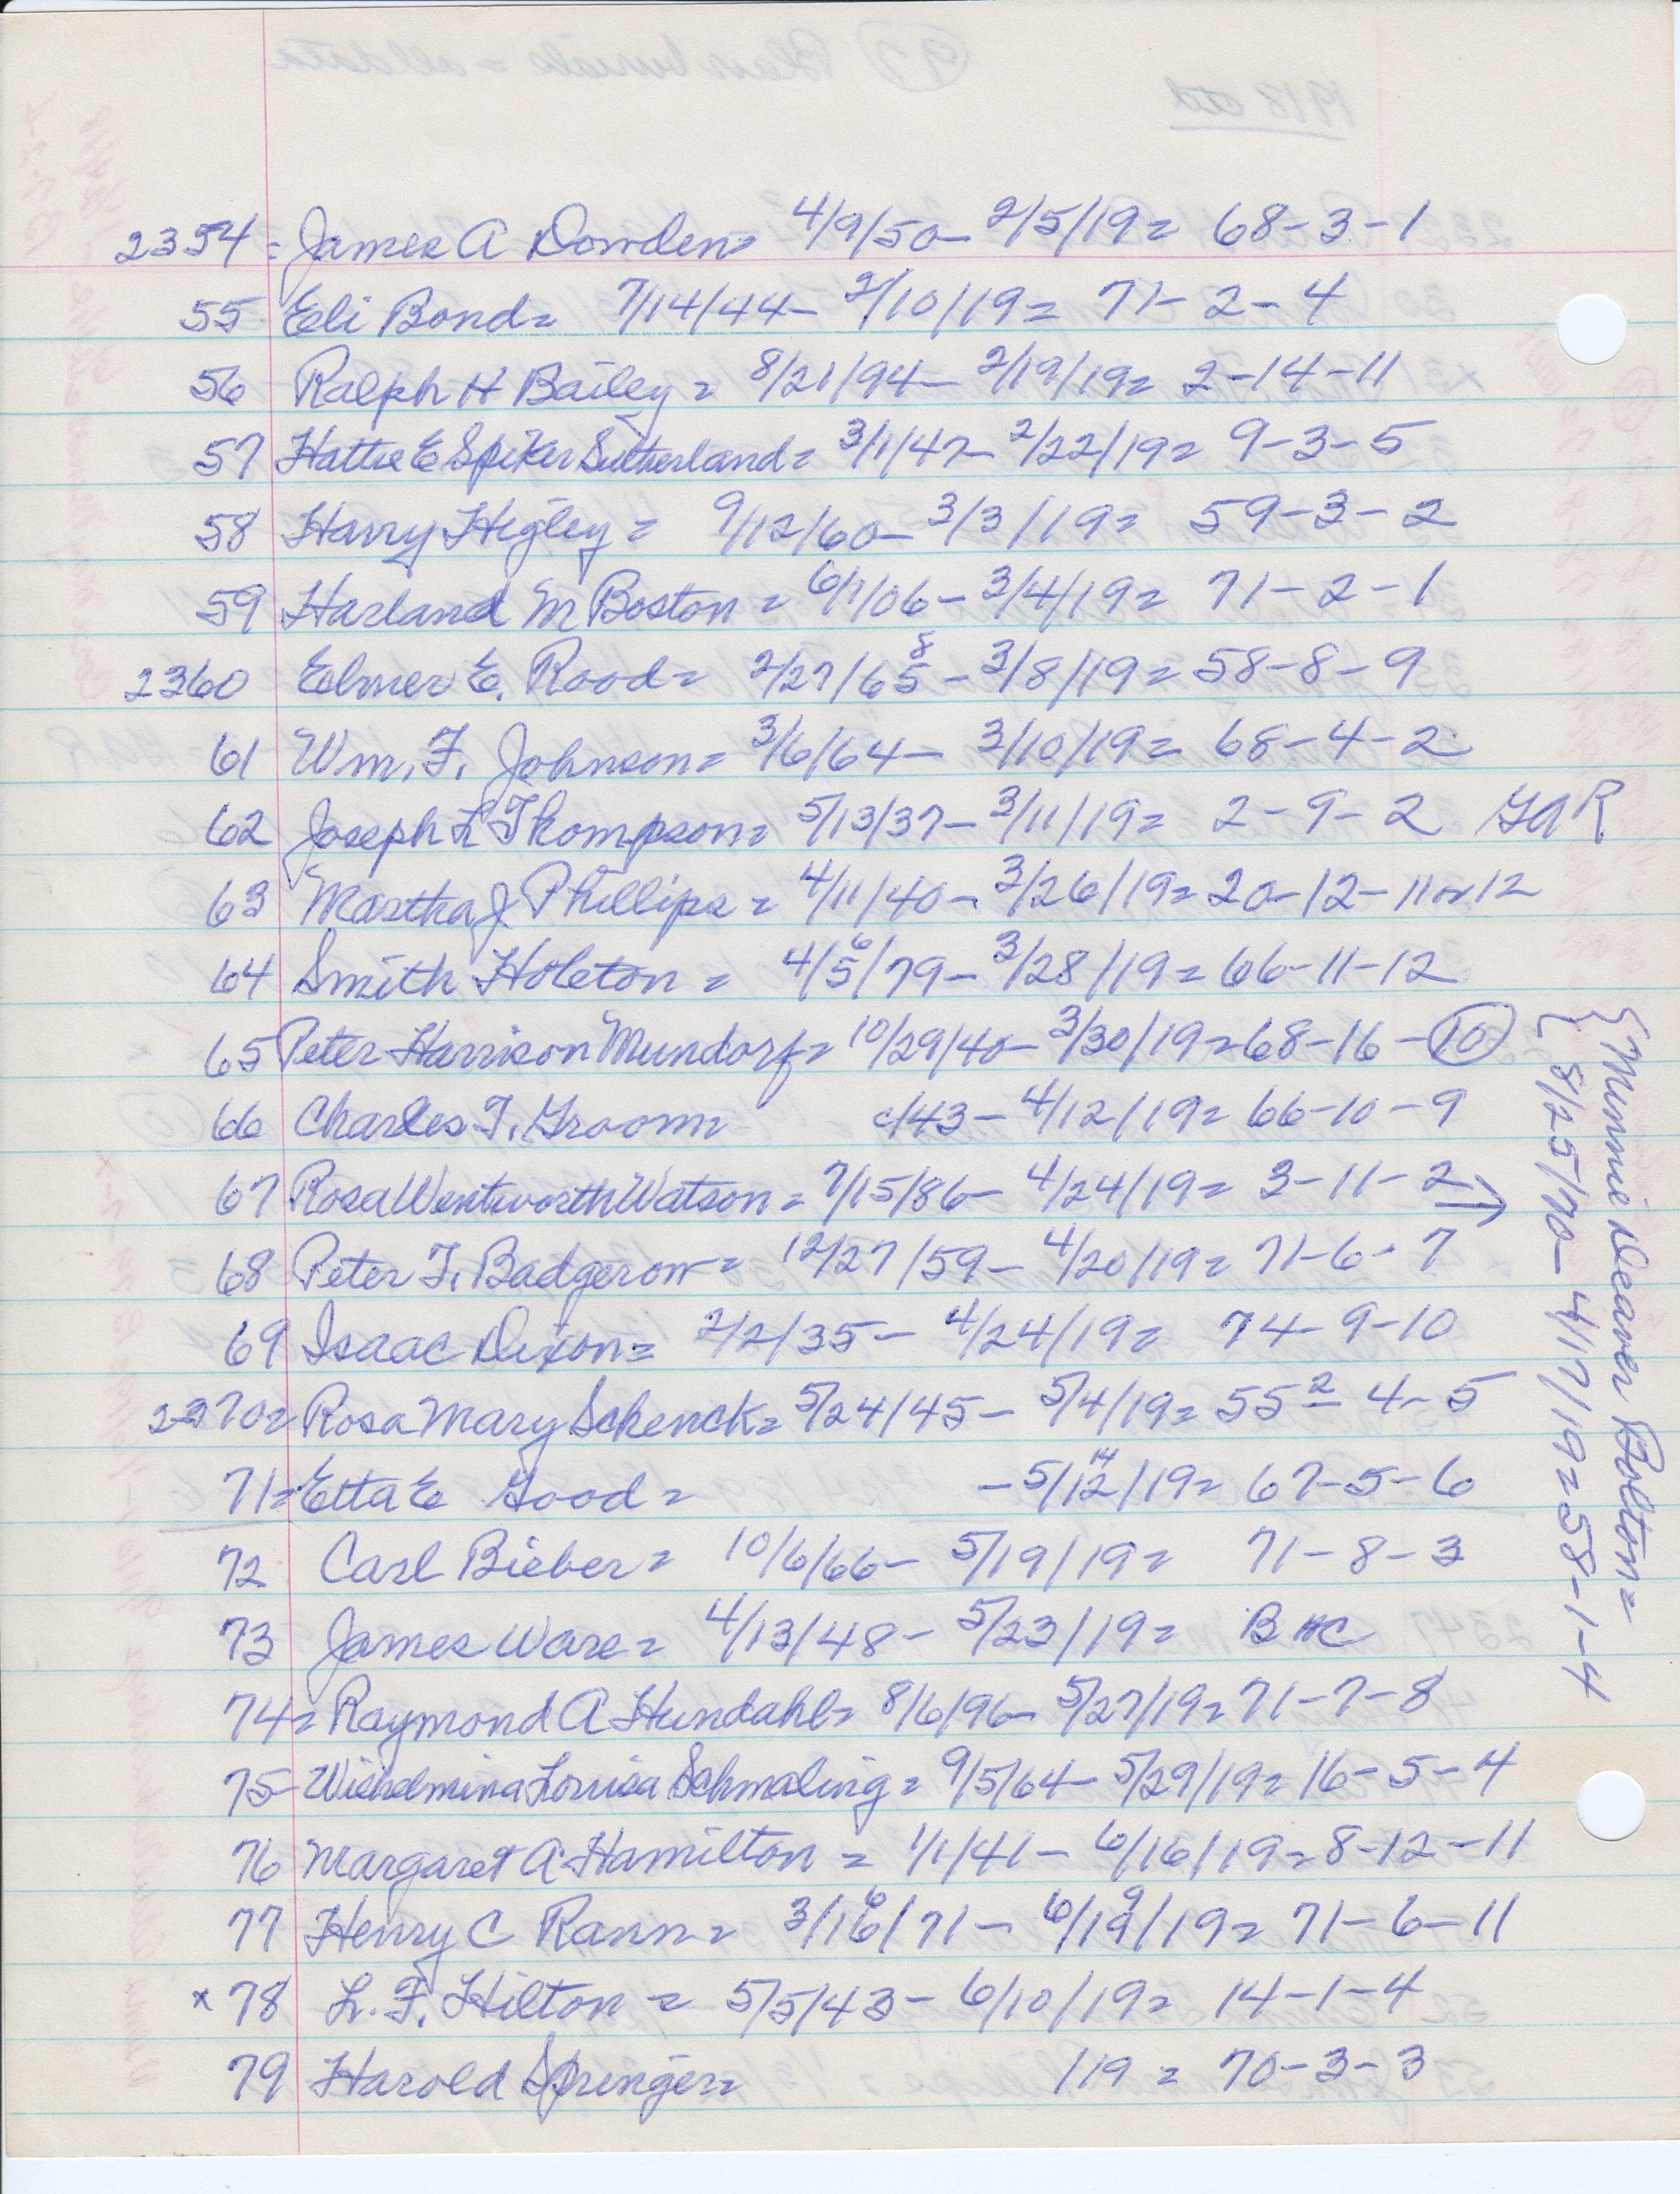 2354 = James A Dowden = 4/9/50 - 2/5/19 = 68-3-1
55 Eli Bond = 7/14/44 - 2/10/19 = 71-2-4
56 Ralph H Bailey = 8/21/94 - 2/19/19 = 2-14-11
57 Hattie E Spiker Sutherland = 3/1/47 - 2/22/19 = 9-3-5
58 Harry Higley = 9/12/60 - 3/3/19 = 59-3-2
59 Harland M Boston = 6/1/06 - 3/4/19 = 71-2-1
8
2360 Elmer E. Rood = 2/27/65 - 3/8/19 = 58-8-9
61 Wm. F. Johnson = 3/6/64 - 3/10/19 = 68-4-2
62 Joseph L Thompson = 5/13/37 - 3/11/19 = 2-9-2 GAR
63 Martha J Phillips = 4/11/40 - 3/26/19 = 20-12-11 or 12
6
64 Smith Holeton = 4/5/79 - 3/28/19 = 66-11-12
65 Peter Harrison Mundorf = 10/29/40 - 3/30/19 = 68-16-10
66 Charles F. Groom = c/43 - 4/12/19 = 66-10-9
67 Rosa Wentworth Watson = 7/15/86 - 4/24/19 = 3-11-2 →
68 Peter F. Badgerow = 12/27/59 - 4/20/19 = 71-6-7
69 Isaac Dixon = 2/2/35 - 4/24/19 = 74-9-10
2370 = Rosa Mary Schenck = 5/24/45 - 5/4/19 = 55 2 - 4-5
14
71 = Etta E Good = - 5/12/19 = 67-5-6
72 Carl Bieber = 10/6/66 - 5/19/19 = 71-8-3
73 James Ware = 4/13/48 - 5/23/19 = B HC
74 = Raymond A Hundahl = 8/6/96 - 5/27/19 = 71-7-8
75 Wilhelmina Louisa Schmaling = 9/5/64 - 5/29/19 = 16-5-4
76 Margaret A Hamilton = 1/1/41 - 6/16/19 = 8-12-11
6 9
77 Henry C Rann = 3/16/71 - 6/19/19 = 71-6-11
x 78 L. F. Hilton = 5/5/43 - 6/10/19 = 14-1-4
79 Harold Springer = /19 = 70-3-3
{ Minnie Deaver Bolton =
8/25/70 - 4/17/19 = 58-1-4